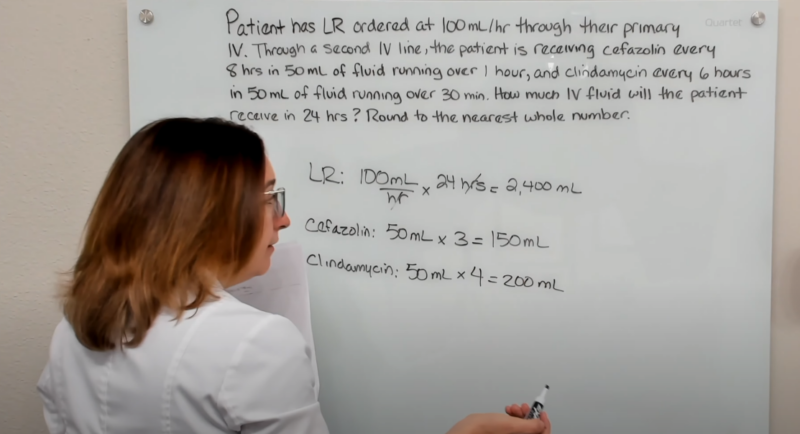 Patient has LR ordered at 100mL/hr through their primary
IV. Through a second IV line, the patient is receiving cefazolin every
8 hrs in 50mL of fluid running over 1 hour, and clindamycin every 6 hours
in 50mL of fluid running over 30 min. How much IV fluid will the patient
receive in 24 hrs? Round to the nearest whole number.
Quartet
LR: 100mL/hr x 24 hrs = 2,400 mL
Cefazolin: 50mL x 3 = 150mL
Clindamycin: 50mL x 4 = 200mL